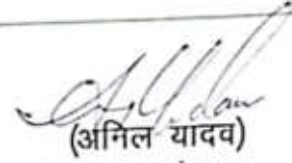 (अनिल यादव)